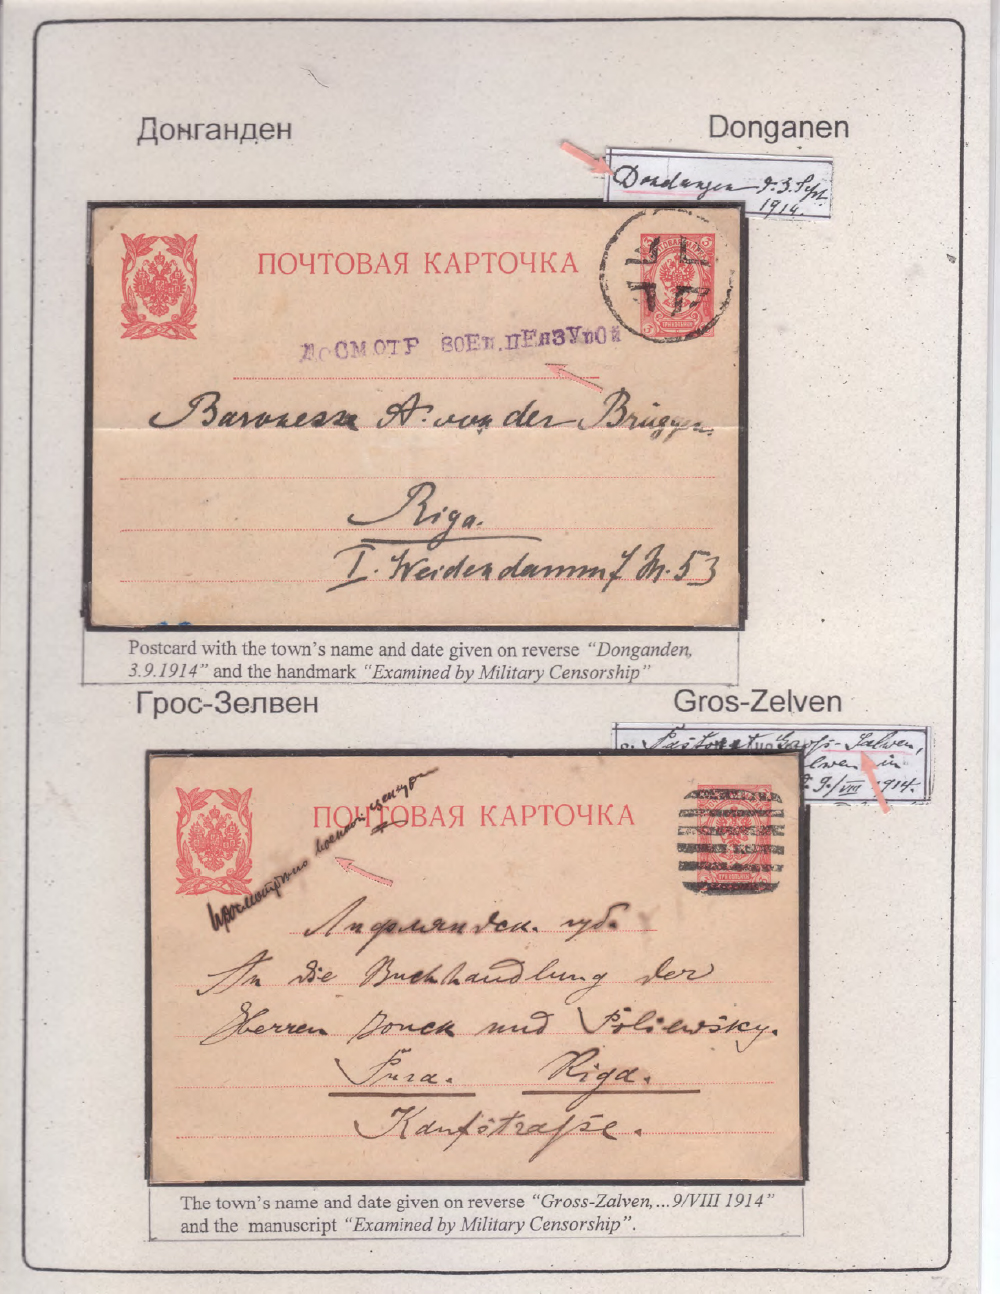 Донганден
Donganen
Dondangen d. 3. Sept.
1914.
ПОЧТОВАЯ КАРТОЧКА
ДОСМОТР ВОЕН. ЦЕНЗУРОЙ
Baronesse A. von der Brüggen.
Riga.
I. Weidendamm
53
Postcard with the town's name and date given on reverse "Donganden,
3.9.1914" and the handmark "Examined by Military Censorship"
Грос-Зелвен
Gros-Zelven
Pastorat Gross-Salwen,
in
9./VIII 1914.
ПОЧТОВАЯ КАРТОЧКА
Просмотрено военной цензурой
Лифляндск. губ.
An die Buchhandlung der
Herren Jonck und Poliewsky.
Riga.
Kaufstraße.
The town's name and date given on reverse "Gross-Zalven,...9/VIII 1914"
and the manuscript "Examined by Military Censorship".